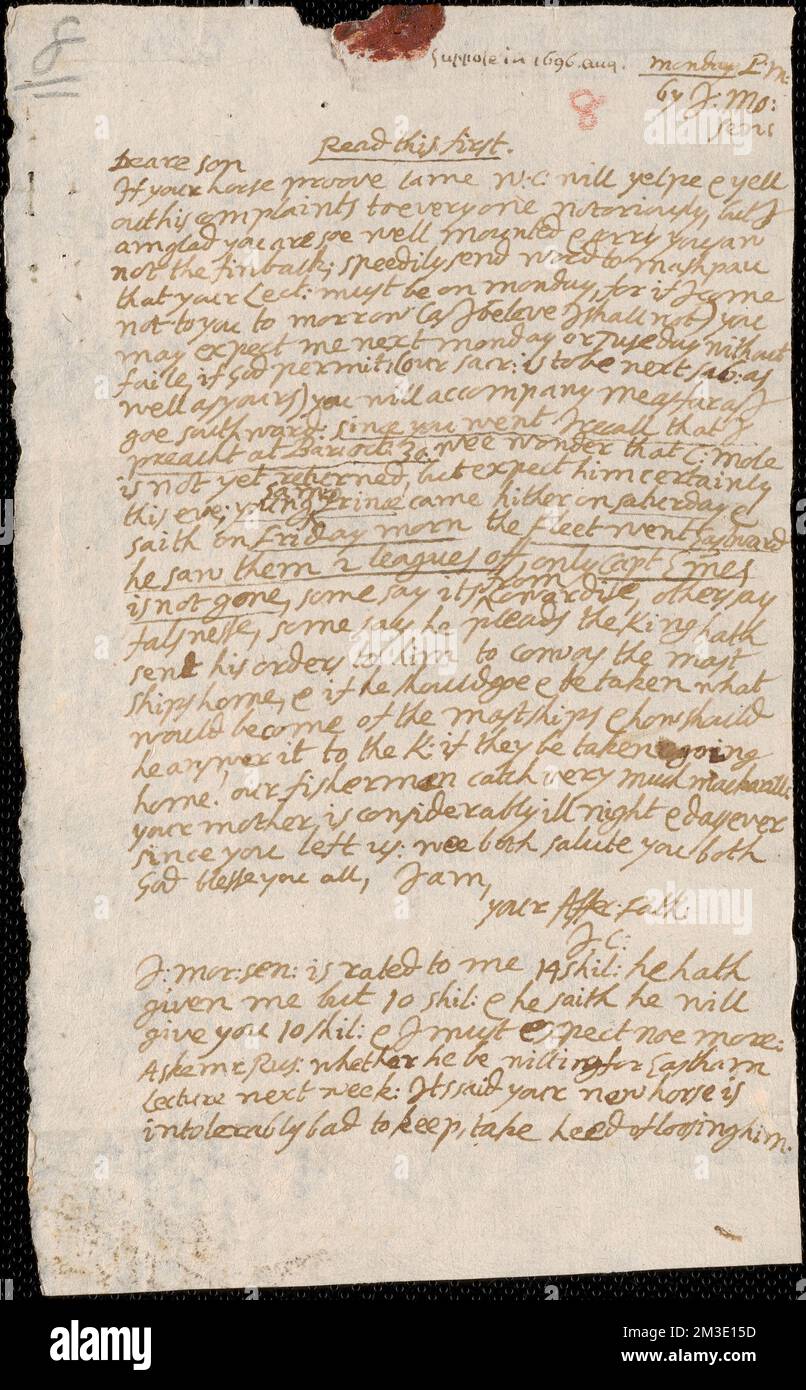 8
Suppose in 1696. aug. monday P:M:
by J: Mo:
senr
8
Read this first.
Deare son
If your horse proove lame W:C: will yelpe & yell
out his complaints to every one notoriously, but I
am glad you are soe well mounted & sorry you aw
not the finback; speedily send word to mashpau
that your Lect: must be on monday, for if I come
not to you to morrow (as I beleve I shall not) you
may expect me next monday or Tuseday without
faile, if God permit; (our sacr: is to be next sab: as
well as yours) you will accompany me as far as I
goe southward: since you went I recall that I
preacht at Barnst: 30. wee wonder that C: Mole
is not yet returned, but expect him certainly
this eve; young Sam Prince came hither on saturday &
saith on Friday morn the fleet went Eastward
he saw them 2 leagues off, only Capt Emes
is not gone, some say its from Cowardise, others say
falsnesse, some say he pleads the King hath
sent his orders to him to convoy the mast
ships home, & if he should goe & be taken what
would become of the mastships & how should
he answer it to the K: if they be taken going
home. our fishermen catch very much mackarills
your mother is considerably ill night & day ever
since you left us: wee both salute you both
God blesse you all, I am,
your Affec: Fath:
J: C:
J: mor: sen: is rated to me 14 shil: he hath
given me but 10 shil: & he saith he will
give you 10 shil: & I must expect noe more:
Aske mr Rus: whether he be willing for Eastham
Lecture next week: Its said your new horse is
intolerably bad to keep, take heed of loosing him.
alamy
Image ID: 2M3E15D
www.alamy.com